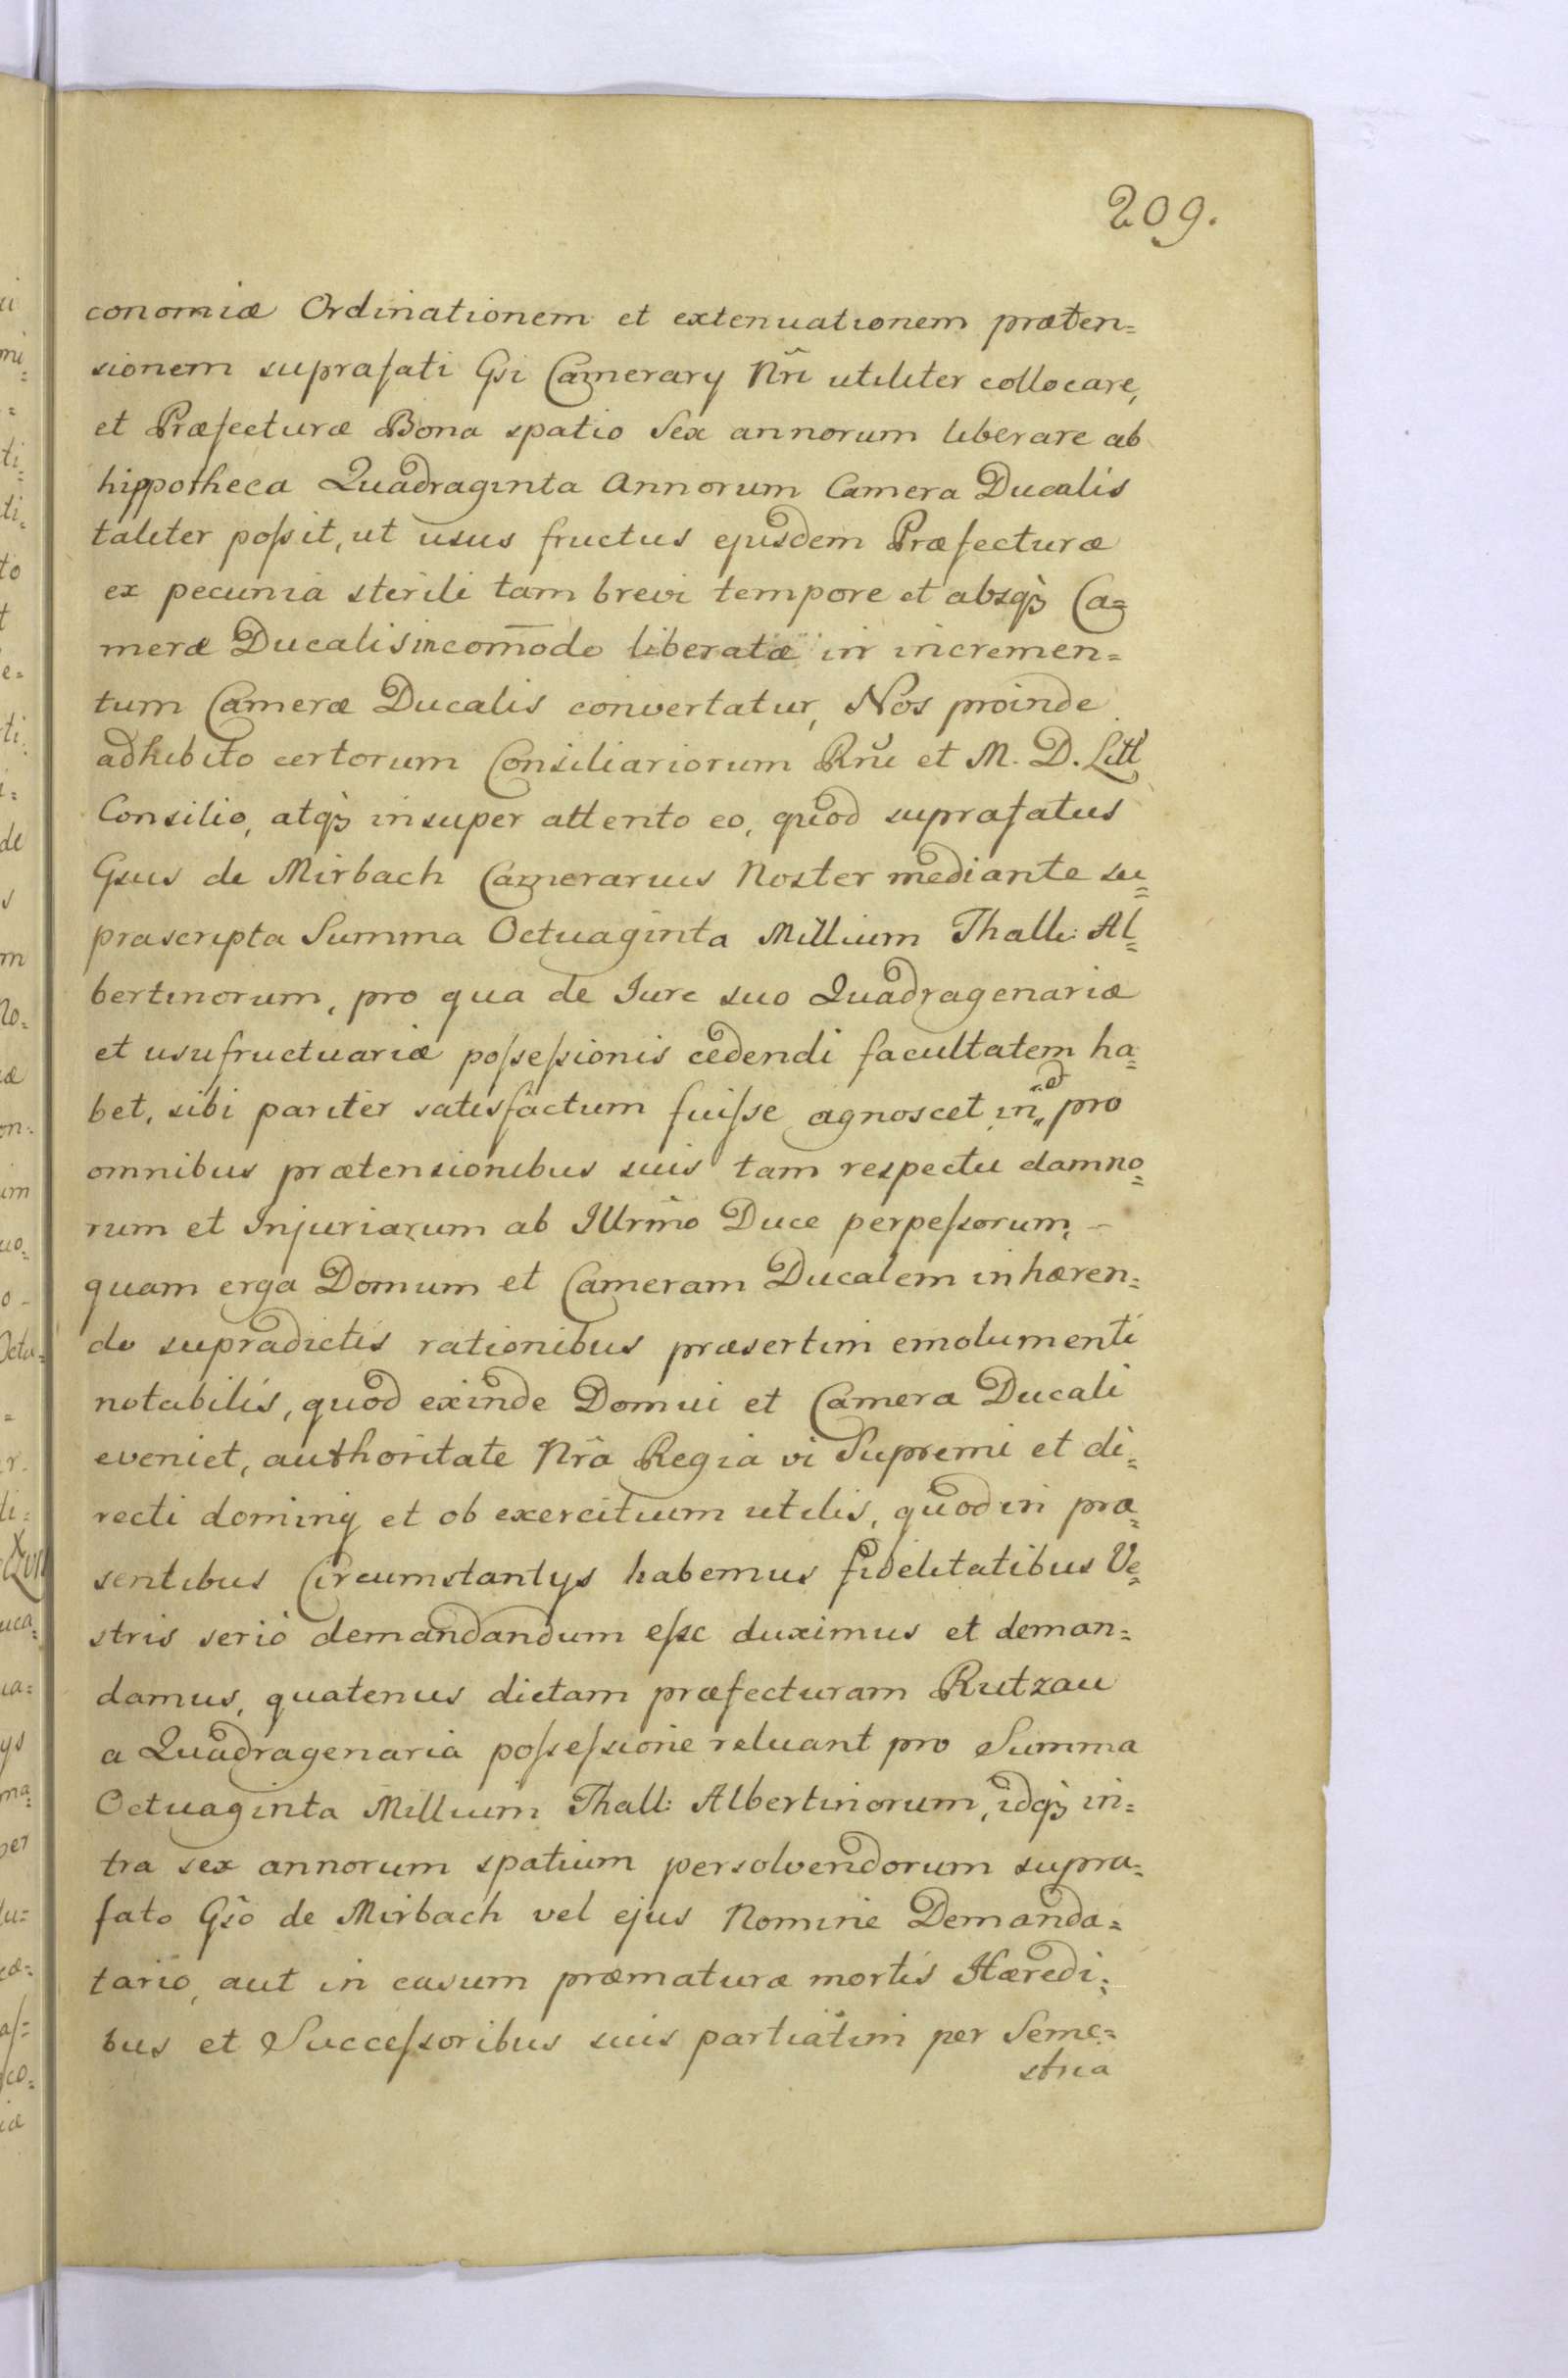 209.
conomiæ Ordinationem et extenuationem præten=
sionem suprafati Gsi Camerary Nri utiliter collocare,
et Præfecturæ Bona spatio Sex annorum liberare ab
hippotheca Quadraginta Annorum Camera Ducalis
taliter poſsit, ut usus fructus ejusdem Præfecturæ
ex pecunia sterili tam brevi tempore et absq₃ Ca=
meræ Ducalis incom̄odo liberatæ in incremen=
tum Cameræ Ducalis convertatur, Nos proinde
adhibito certorum Consiliariorum Rnu et M. D. Litt
Consilio, atq₃ insuper attento eo, quod suprafatus
Gsus de Mirbach Camerarius Noster mediante su=
prascripta Summa Octuaginta Millium Thall: Al=
bertinorum, pro qua de Iure suo Quadragenariæ
et usufructuariæ poſseſsionis cedendi facultatem ha=
bet, sibi pariter satisfactum fuiſse agnoscet in et pro
omnibus prætensionibus suis tam respectu damno=
rum et Injuriarum ab Illrmo Duce perpeſsorum,
quam erga Domum et Cameram Ducalem inhæren=
do supradictis rationibus præsertim emolumenti
notabilis, quod exinde Domui et Camera Ducali
eveniet, authoritate Nrâ Regia vi Supremi et di=
recti dominij et ob exercitium utilis, quod in præ=
sentibus Circumstantys habemus fidelitatibus Ve=
stris serio demandandum eſse duximus et deman=
damus, quatenus dictam præfecturam Rutzau
a Quadragenaria poſseſsione reluant pro Summa
Octuaginta Millium Thall: Albertinorum, idq₃ in=
tra sex annorum spatium persolvendorum supra=
fato Gsô de Mirbach vel ejus Nomine Demanda=
tario, aut in casum præmaturæ mortis Hæredi=
bus et Succeſsoribus suis partiatim per Seme=
stria